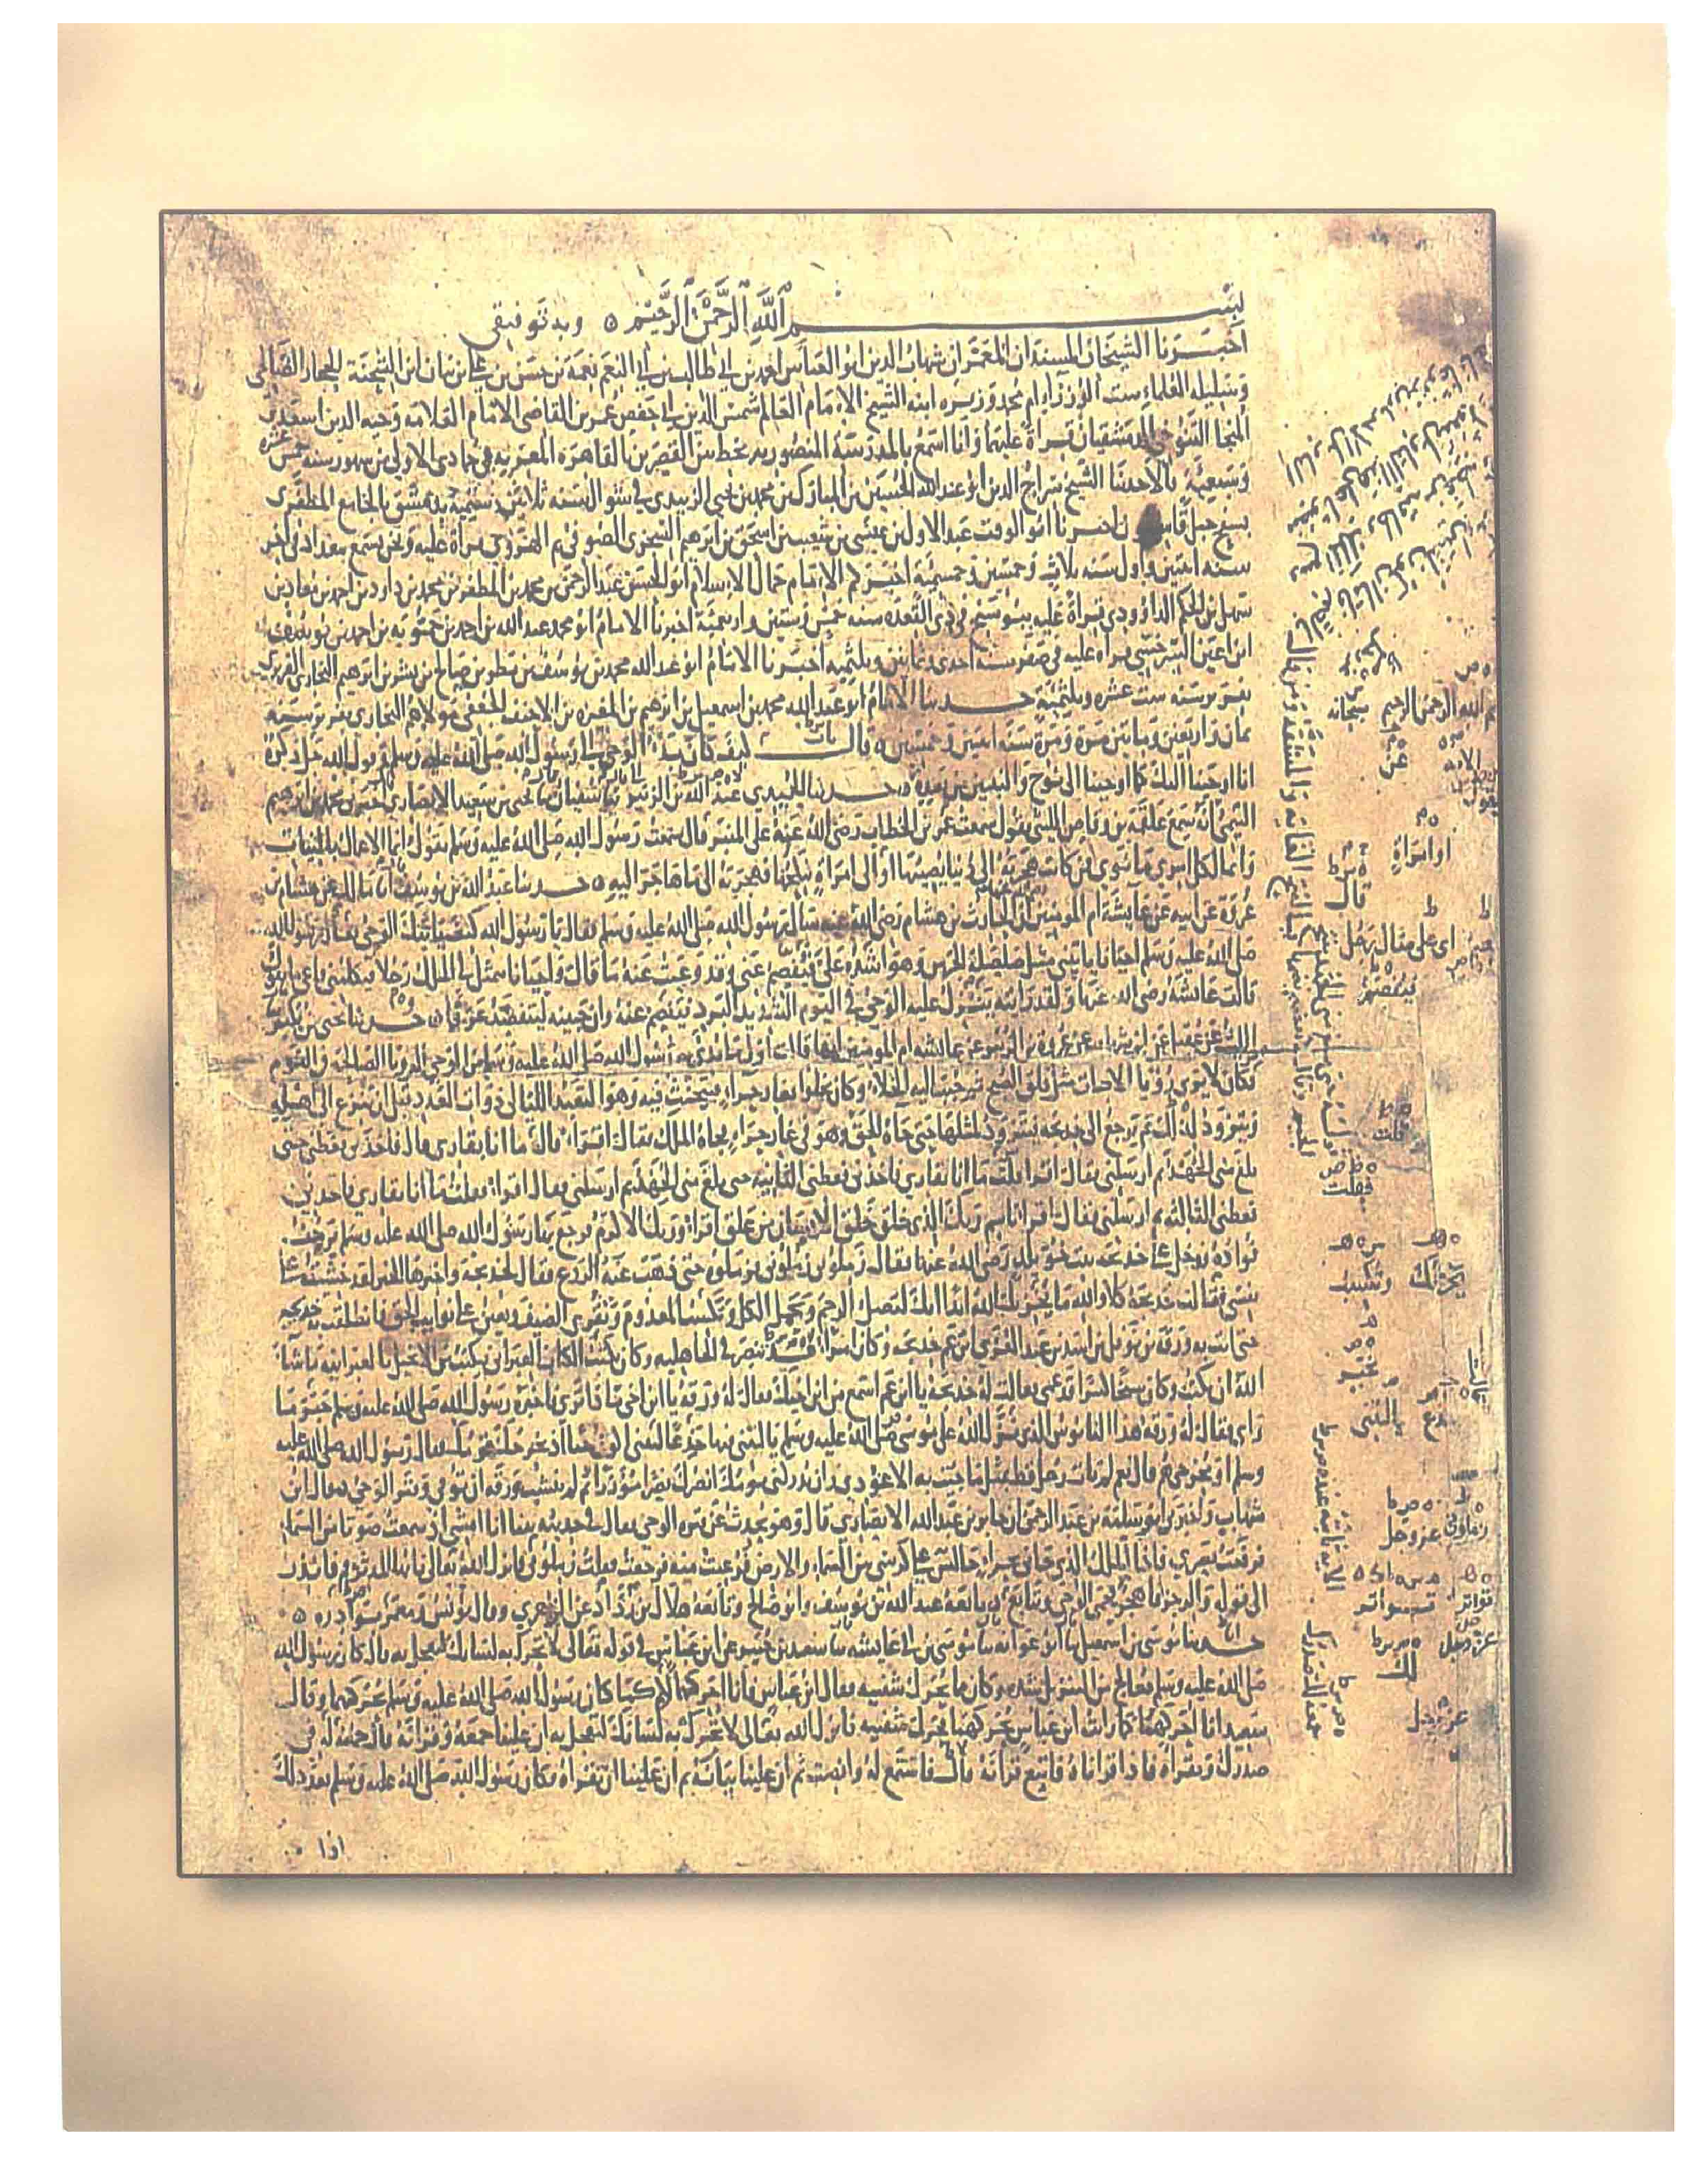 بسم الله الرحمن الرحيم ٥ وبه توفيقي
أخبرنا الشيخان المسندان المعمران شهاب الدين ابو العباس احمد بن ابي طالب بن ابي النعم نعمة بن حسن بن علي بن بيان ابن الشحنة الحجار الصالحي
وست الوزراء ام محمد وزيره ابنة الشيخ الامام العالم شمس الدين ابي حفص عمر بن القاضي الامام العلامه وجيه الدين اسعد بن
المنجا التنوخي الدمشقيان قراة عليهما وانا اسمع بالمدرسة المنصوريه بخط بين القصرين بالقاهره المعزيه في جمادى الاولى من شهور سنه خمس عشره
وسبعمية قالا حدثنا الشيخ سراج الدين ابو عبد الله الحسين بن المبارك بن محمد بن يحيى الزبيدي في شوال سنه ثلاثين وستميه بدمشق بالجامع المظفري
بسفح جبل قاسيون اخبرنا ابو الوقت عبد الاول بن عيسى بن شعيب بن اسحق بن ابرهيم السجزي الصوفي ثم الهروي قراة عليه ونحن نسمع ببغداد في اخر
سنه اثنتين واول سنه ثلاث وخمسين وخمسمية اخبركم الامام جمال الاسلام ابو الحسن عبد الرحمن بن محمد بن المظفر بن محمد بن داود بن احمد بن معاذ بن
سهل بن الحكم الداوودي قراة عليه ببوشنج في ذي القعده سنه خمس وستين واربعمية اخبرنا الامام ابو محمد عبد الله بن احمد بن حمويه بن احمد بن يوسف
ابن اعين السرخسي قراه عليه في صفر سنه احدى وثمانين وثلثميه اخبرنا الامام ابو عبد الله محمد بن يوسف بن مطر بن صالح بن بشر بن ابرهيم البخاري الفربري
بفربر سنه ست عشره وثلثمية حدثنا الامام ابو عبد الله محمد بن اسمعيل بن ابرهيم بن المغيره بن الاحنف الجعفي مولاهم البخاري بفربر سنة
ثمان واربعين ومايتين مرة ومرة سنه اثنتين وخمسين ٥ قال باب كيف كان بدء الوحي الى رسول الله صلى الله عليه وسلم وقول الله جل ذكره
انا اوحينا اليك كما اوحينا الى نوح والنبيين من بعده ٥ حدثنا الحميدي عبد الله بن الزبير ثنا سفيان ثنا يحيى بن سعيد الانصاري اخبرني محمد بن ابرهيم
التيمي انه سمع علقمة بن وقاص الليثي يقول سمعت عمر بن الخطاب رضي الله عنه على المنبر قال سمعت رسول الله صلى الله عليه وسلم يقول انما الاعمال بالنيات
وانما لكل امرئ ما نوى فمن كانت هجرته الى دنيا يصيبها او الى امراة ينكحها فهجرته الى ما هاجر اليه ٥ حدثنا عبد الله بن يوسف انا مالك عن هشام بن
عروة عن ابيه عن عايشة ام المومنين ان الحارث بن هشام رضي الله عنه سال رسول الله صلى الله عليه وسلم فقال يا رسول الله كيف ياتيك الوحي فقال رسول الله
صلى الله عليه وسلم احيانا ياتيني مثل صلصلة الجرس وهو اشده علي فيفصم عني وقد وعيت عنه ما قال واحيانا يتمثل لي الملك رجلا فيكلمني فاعي ما يقول
قالت عائشة رضي الله عنها ولقد رايته ينزل عليه الوحي في اليوم الشديد البرد فيفصم عنه وان جبينه ليتفصد عرقا ٥ حدثنا يحيى بن بكير
الليث عن عقيل عن ابن شهاب عن عروة بن الزبير عن عائشه ام المومنين انها قالت اول ما بدئ به رسول الله صلى الله عليه وسلم من الوحي الرويا الصالحة في النوم
فكان لا يرى رويا الا جات مثل فلق الصبح ثم حبب اليه الخلاء وكان يخلو بغار حراء فيتحنث فيه وهو التعبد الليالي ذوات العدد قبل ان ينزع الى اهله
ويتزود لذلك ثم يرجع الى خديجه فيتزود لمثلها حتى جاه الحق وهو في غار حراء فجاه الملك فقال اقرا قال ما انا بقاري قال فاخذني فغطني حتى
بلغ مني الجهد ثم ارسلني فقال اقرا قلت ما انا بقاري فاخذني فغطني الثانيه حتى بلغ مني الجهد ثم ارسلني فقال اقرا فقلت ما انا بقاري فاخذني
فغطني الثالثه ثم ارسلني فقال اقرا باسم ربك الذي خلق خلق الانسان من علق اقرا وربك الاكرم فرجع بها رسول الله صلى الله عليه وسلم يرجف
فواده فدخل على خديجه بنت خويلد رضي الله عنها فقال زملوني زملوني فزملوه حتى ذهب عنه الروع فقال لخديجة واخبرها الخبر لقد خشيت على
نفسي فقالت خديجة كلا والله ما يخزيك الله ابدا انك لتصل الرحم وتحمل الكل وتكسب المعدوم وتقري الضيف وتعين على نوايب الحق فانطلقت به خديجه
حتى اتت به ورقة بن نوفل بن اسد بن عبد العزى ابن عم خديجه وكان امرا قد تنصر في الجاهليه وكان يكتب الكتاب العبراني فيكتب من الانجيل بالعبرانيه ما شا
الله ان يكتب وكان شيخا كبيرا قد عمي فقالت له خديجة يا ابن عم اسمع من ابن اخيك فقال له ورقة يا ابن اخي ماذا ترى فاخبره رسول الله صلى الله عليه وسلم خبر ما
راى فقال له ورقه هذا الناموس الذي نزل الله على موسى صلى الله عليه وسلم يا ليتني فيها جذعا ليتني اكون حيا اذ يخرجك قومك فقال رسول الله صلى الله عليه
وسلم او مخرجي هم قال نعم لم يات رجل قط بمثل ما جيت به الا عودي وان يدركني يومك انصرك نصرا موزرا ثم لم ينشب ورقه ان توفي وفتر الوحي ٥ قال ابن
شهاب واخبرني ابو سلمة بن عبد الرحمن ان جابر بن عبد الله الانصاري قال وهو يحدث عن فترة الوحي فقال في حديثه بينا انا امشي اذ سمعت صوتا من السماء
فرفعت بصري فاذا الملك الذي جاني بحراء جالس على كرسي بين السماء والارض فرعبت منه فرجعت فقلت زملوني فانزل الله تعالى يا ايها المدثر قم فانذر
الى قوله والرجز فاهجر فحمي الوحي وتتابع ٥ تابعه عبد الله بن يوسف وابو صالح وتابعه هلال بن رداد عن الزهري وقال يونس ومعمر بوادره ٥
حدثنا موسى بن اسمعيل ثنا ابو عوانه ثنا موسى بن ابي عايشه ثنا سعيد بن جبير عن ابن عباس في قوله تعالى لا تحرك به لسانك لتعجل به قال كان رسول الله
صلى الله عليه وسلم يعالج من التنزيل شده وكان مما يحرك شفتيه فقال ابن عباس فانا احركهما لك كما كان رسول الله صلى الله عليه وسلم يحركهما وقال
سعيد انا احركهما كما رايت ابن عباس يحركهما فحرك شفتيه فانزل الله تعالى لا تحرك به لسانك لتعجل به ان علينا جمعه وقرانه قال جمعه له في
صدرك وتقراه فاذا قراناه فاتبع قرانه قال فاستمع له وانصت ثم ان علينا بيانه ثم ان علينا ان تقراه فكان رسول الله صلى الله عليه وسلم بعد ذلك
اذا
بسم الله الرحمن الرحيم
سبحانه
عز وجل
او امراة
قال
اي على مثال رجل
فيفصم
قلت
فقلت
يحزنك
وتكسب
بخبر
يا ليتني
زملوني
عز وجل
تواتر
عز وجل
لك
عز وجل
جمعه لك صدرك